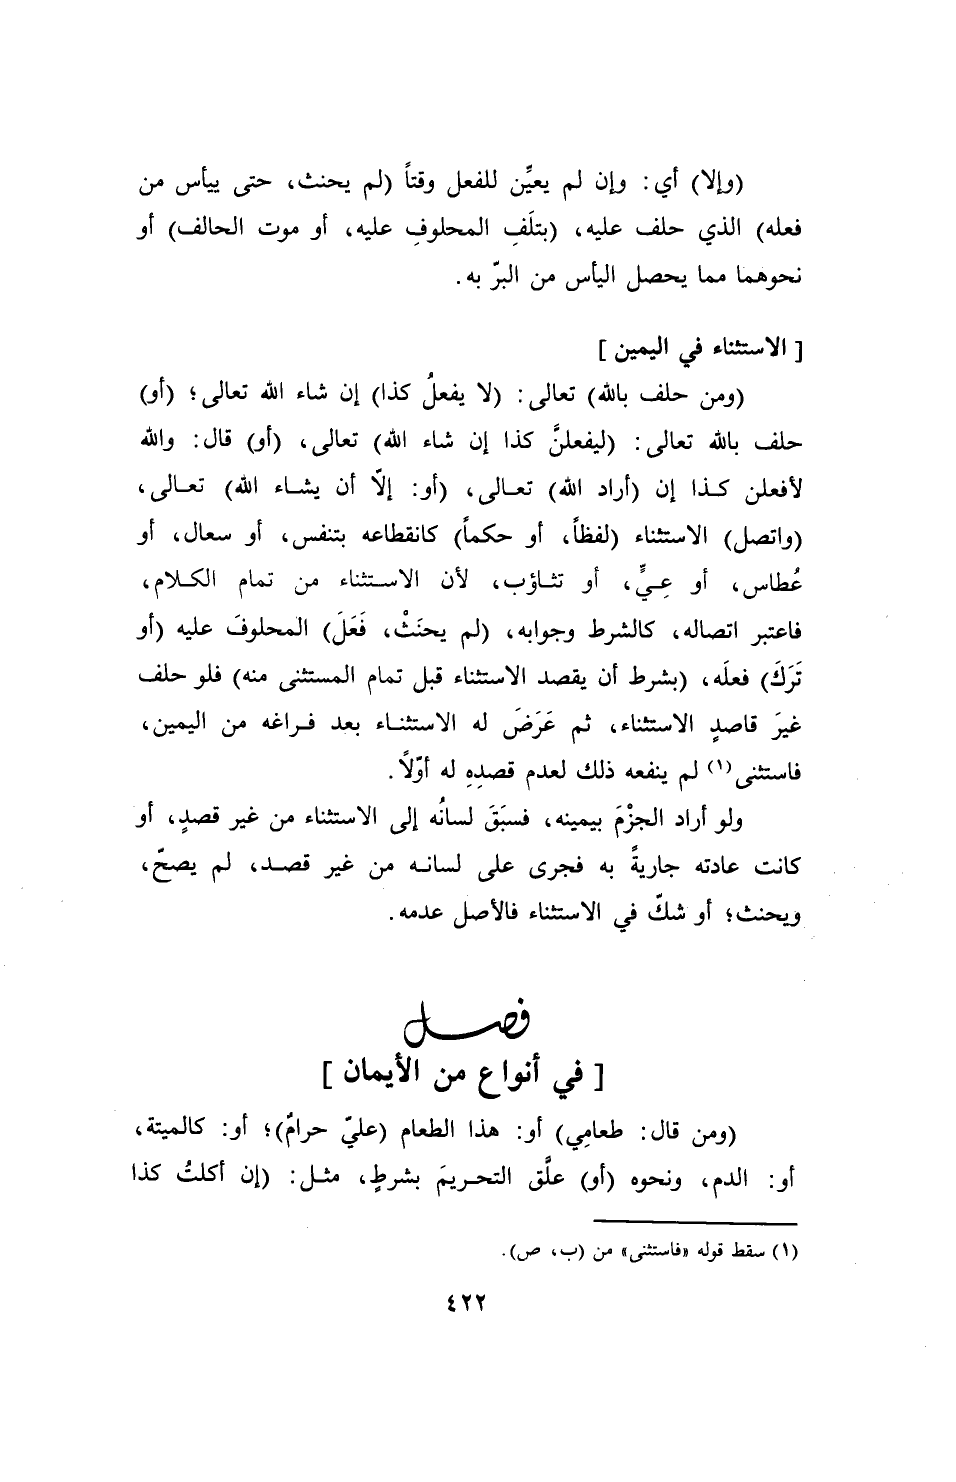 (وإلا) أي: وإن لم يعيِّن للفعل وقتاً (لم يحنث، حتى ييأس من
فعله) الذي حلف عليه، (بتلَفِ المحلوفِ عليه، أو موت الحالف) أو
نحوهما مما يحصل اليأس من البرّ به.
[ الاستثناء في اليمين ]
(ومن حلف بالله) تعالى: (لا يفعلُ كذا) إن شاء الله تعالى؛ (أو)
حلف بالله تعالى: (ليفعلنَّ كذا إن شاء الله) تعالى، (أو) قال: والله
لأفعلن كذا إن (أراد الله) تعالى، (أو: إلاّ أن يشاء الله) تعالى،
(واتصل) الاستثناء (لفظاً، أو حكماً) كانقطاعه بتنفس، أو سعال، أو
عُطاس، أو عِيٍّ، أو تثاؤب، لأن الاستثناء من تمام الكلام،
فاعتبر اتصاله، كالشرط وجوابه، (لم يحنَثْ، فَعَلَ) المحلوفَ عليه (أو
تَرَكَ) فعلَه، (بشرط أن يقصد الاستثناء قبل تمام المستثنى منه) فلو حلف
غيرَ قاصدٍ الاستثناء، ثم عَرَضَ له الاستثناء بعد فراغه من اليمين،
فاستثنى(١) لم ينفعه ذلك لعدم قصدِهِ له أوّلاً.
ولو أراد الجزْمَ بيمينه، فسبَقَ لسانُه إلى الاستثناء من غير قصدٍ، أو
كانت عادته جاريةً به فجرى على لسانه من غير قصد، لم يصحّ،
ويحنث؛ أو شكّ في الاستثناء فالأصل عدمه.
فصل
[ في أنواع من الأيمان ]
(ومن قال: طعامِي) أو: هذا الطعام (عليّ حرامٌ)؛ أو: كالميتة،
أو: الدم، ونحوه (أو) علَّق التحريمَ بشرطٍ، مثل: (إن أكلتُ كذا
(١) سقط قوله «فاستثنى» من (ب، ص).
٤٢٢